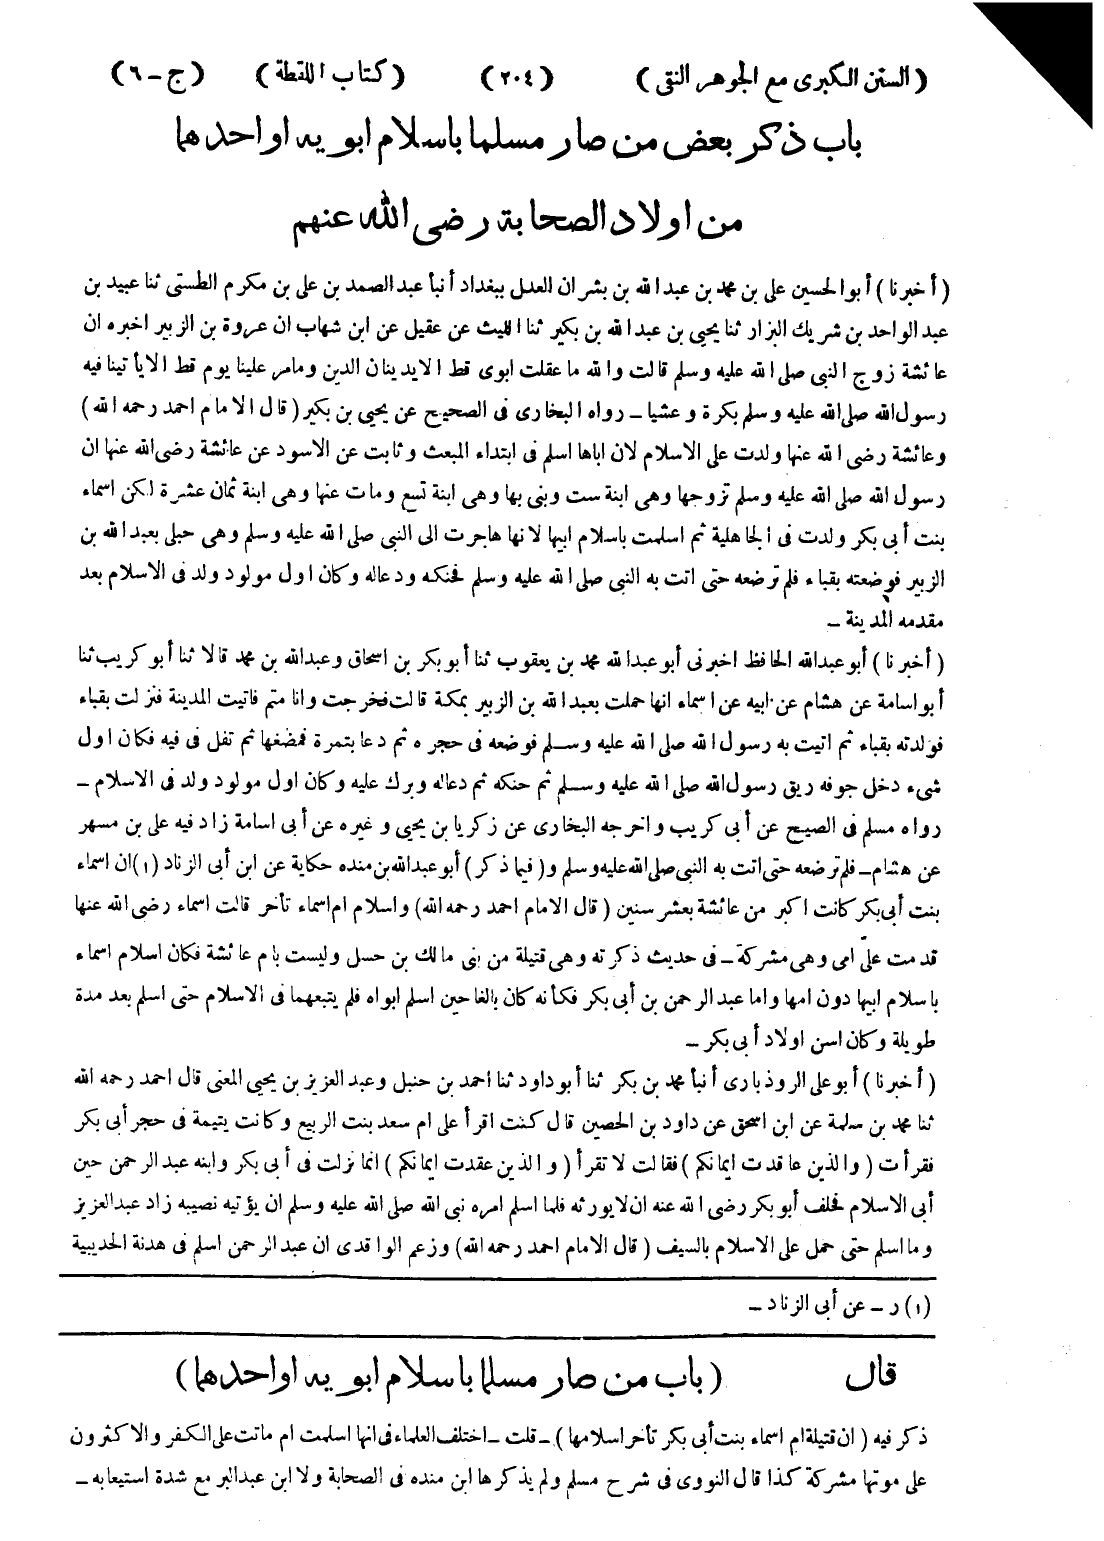 (السنن الكبرى مع الجوهر النقى) (٢٠٤) (كتاب اللقطة) (ج-٦)
باب ذكر بعض من صار مسلما باسلام ابويه او احدهما
من اولاد الصحابة رضى الله عنهم
(أخبرنا) أبو الحسين على بن محمد بن عبد الله بن بشران العدل ببغداد أنبأ عبد الصمد بن على بن مكرم الطستى ثنا عبيد بن
عبد الواحد بن شريك البزار ثنا يحيى بن عبد الله بن بكير ثنا الليث عن عقيل عن ابن شهاب ان عروة بن الزبير اخبره ان
عائشة زوج النبى صلى الله عليه وسلم قالت والله ما عقلت ابوى قط الا يدينان الدين وما مر علينا يوم قط الا يأتينا فيه
رسول الله صلى الله عليه وسلم بكرة وعشيا - رواه البخارى فى الصحيح عن يحيى بن بكير (قال الامام احمد رحمه الله)
وعائشة رضى الله عنها ولدت على الاسلام لان اباها اسلم فى ابتداء المبعث وثابت عن الاسود عن عائشة رضى الله عنها ان
رسول الله صلى الله عليه وسلم تزوجها وهى ابنة ست وبنى بها وهى ابنة تسع ومات عنها وهى ابنة ثمان عشرة لكن اسماء
بنت أبى بكر ولدت فى الجاهلية ثم اسلمت باسلام ابيها لانها هاجرت الى النبى صلى الله عليه وسلم وهى حبلى بعبد الله بن
الزبير فوضعته بقباء فلم ترضعه حتى اتت به النبى صلى الله عليه وسلم فحنكه ودعا له وكان اول مولود ولد فى الاسلام بعد
مقدمه المدينة -
(أخبرنا) أبو عبد الله الحافظ اخبرنى أبو عبد الله محمد بن يعقوب ثنا أبو بكر بن اسحاق وعبد الله بن محمد قالا ثنا أبو كريب ثنا
أبو اسامة عن هشام عن ابيه عن اسماء انها حملت بعبد الله بن الزبير بمكة قالت فخرجت وانا متم فاتيت المدينة فنزلت بقباء
فولدته بقباء ثم اتيت به رسول الله صلى الله عليه وسلم فوضعه فى حجره ثم دعا بتمرة فمضغها ثم تفل فى فيه فكان اول
شىء دخل جوفه ريق رسول الله صلى الله عليه وسلم ثم حنكه ثم دعا له وبرك عليه وكان اول مولود ولد فى الاسلام -
رواه مسلم فى الصحيح عن أبى كريب واخرجه البخارى عن زكريا بن يحيى وغيره عن أبى اسامة زاد فيه على بن مسهر
عن هشام - فلم ترضعه حتى اتت به النبى صلى الله عليه وسلم و(فيما ذكر) أبو عبد الله بن منده حكاية عن ابن أبى الزناد (١) ان اسماء
بنت أبى بكر كانت اكبر من عائشة بعشر سنين (قال الامام احمد رحمه الله) واسلام ام اسماء تأخر قالت اسماء رضى الله عنها
قدمت علىّ امى وهى مشركة - فى حديث ذكرته وهى قتيلة من بنى مالك بن حسل وليست بام عائشة فكان اسلام اسماء
باسلام ابيها دون امها واما عبد الرحمن بن أبى بكر فكأنه كان بالغا حين اسلم ابواه فلم يتبعهما فى الاسلام حتى اسلم بعد مدة
طويلة وكان اسن اولاد أبى بكر -
(أخبرنا) أبو على الروذبارى أنبأ محمد بن بكر ثنا أبو داود ثنا احمد بن حنبل وعبد العزيز بن يحيى المعنى قال احمد رحمه الله
ثنا محمد بن سلمة عن ابن اسحق عن داود بن الحصين قال كنت اقرأ على ام سعد بنت الربيع وكانت يتيمة فى حجر أبى بكر
فقرأت (والذين عاقدت ايمانكم) فقالت لا تقرأ (والذين عقدت ايمانكم) انما نزلت فى أبى بكر وابنه عبد الرحمن حين
أبى الاسلام فحلف أبو بكر رضى الله عنه ان لا يورثه فلما اسلم امره نبى الله صلى الله عليه وسلم ان يؤتيه نصيبه زاد عبد العزيز
وما اسلم حتى حمل على الاسلام بالسيف (قال الامام احمد رحمه الله) وزعم الواقدى ان عبد الرحمن اسلم فى هدنة الحديبية
(١) ر - عن أبى الزناد -
قال (باب من صار مسلما باسلام ابويه او احدهما)
ذكر فيه (ان قتيلة ام اسماء بنت أبى بكر تأخر اسلامها) - قلت - اختلف العلماء فى انها اسلمت ام ماتت على الكفر والاكثرون
على موتها مشركة كذا قال النووى فى شرح مسلم ولم يذكرها ابن منده فى الصحابة ولا ابن عبد البر مع شدة استيعابه -